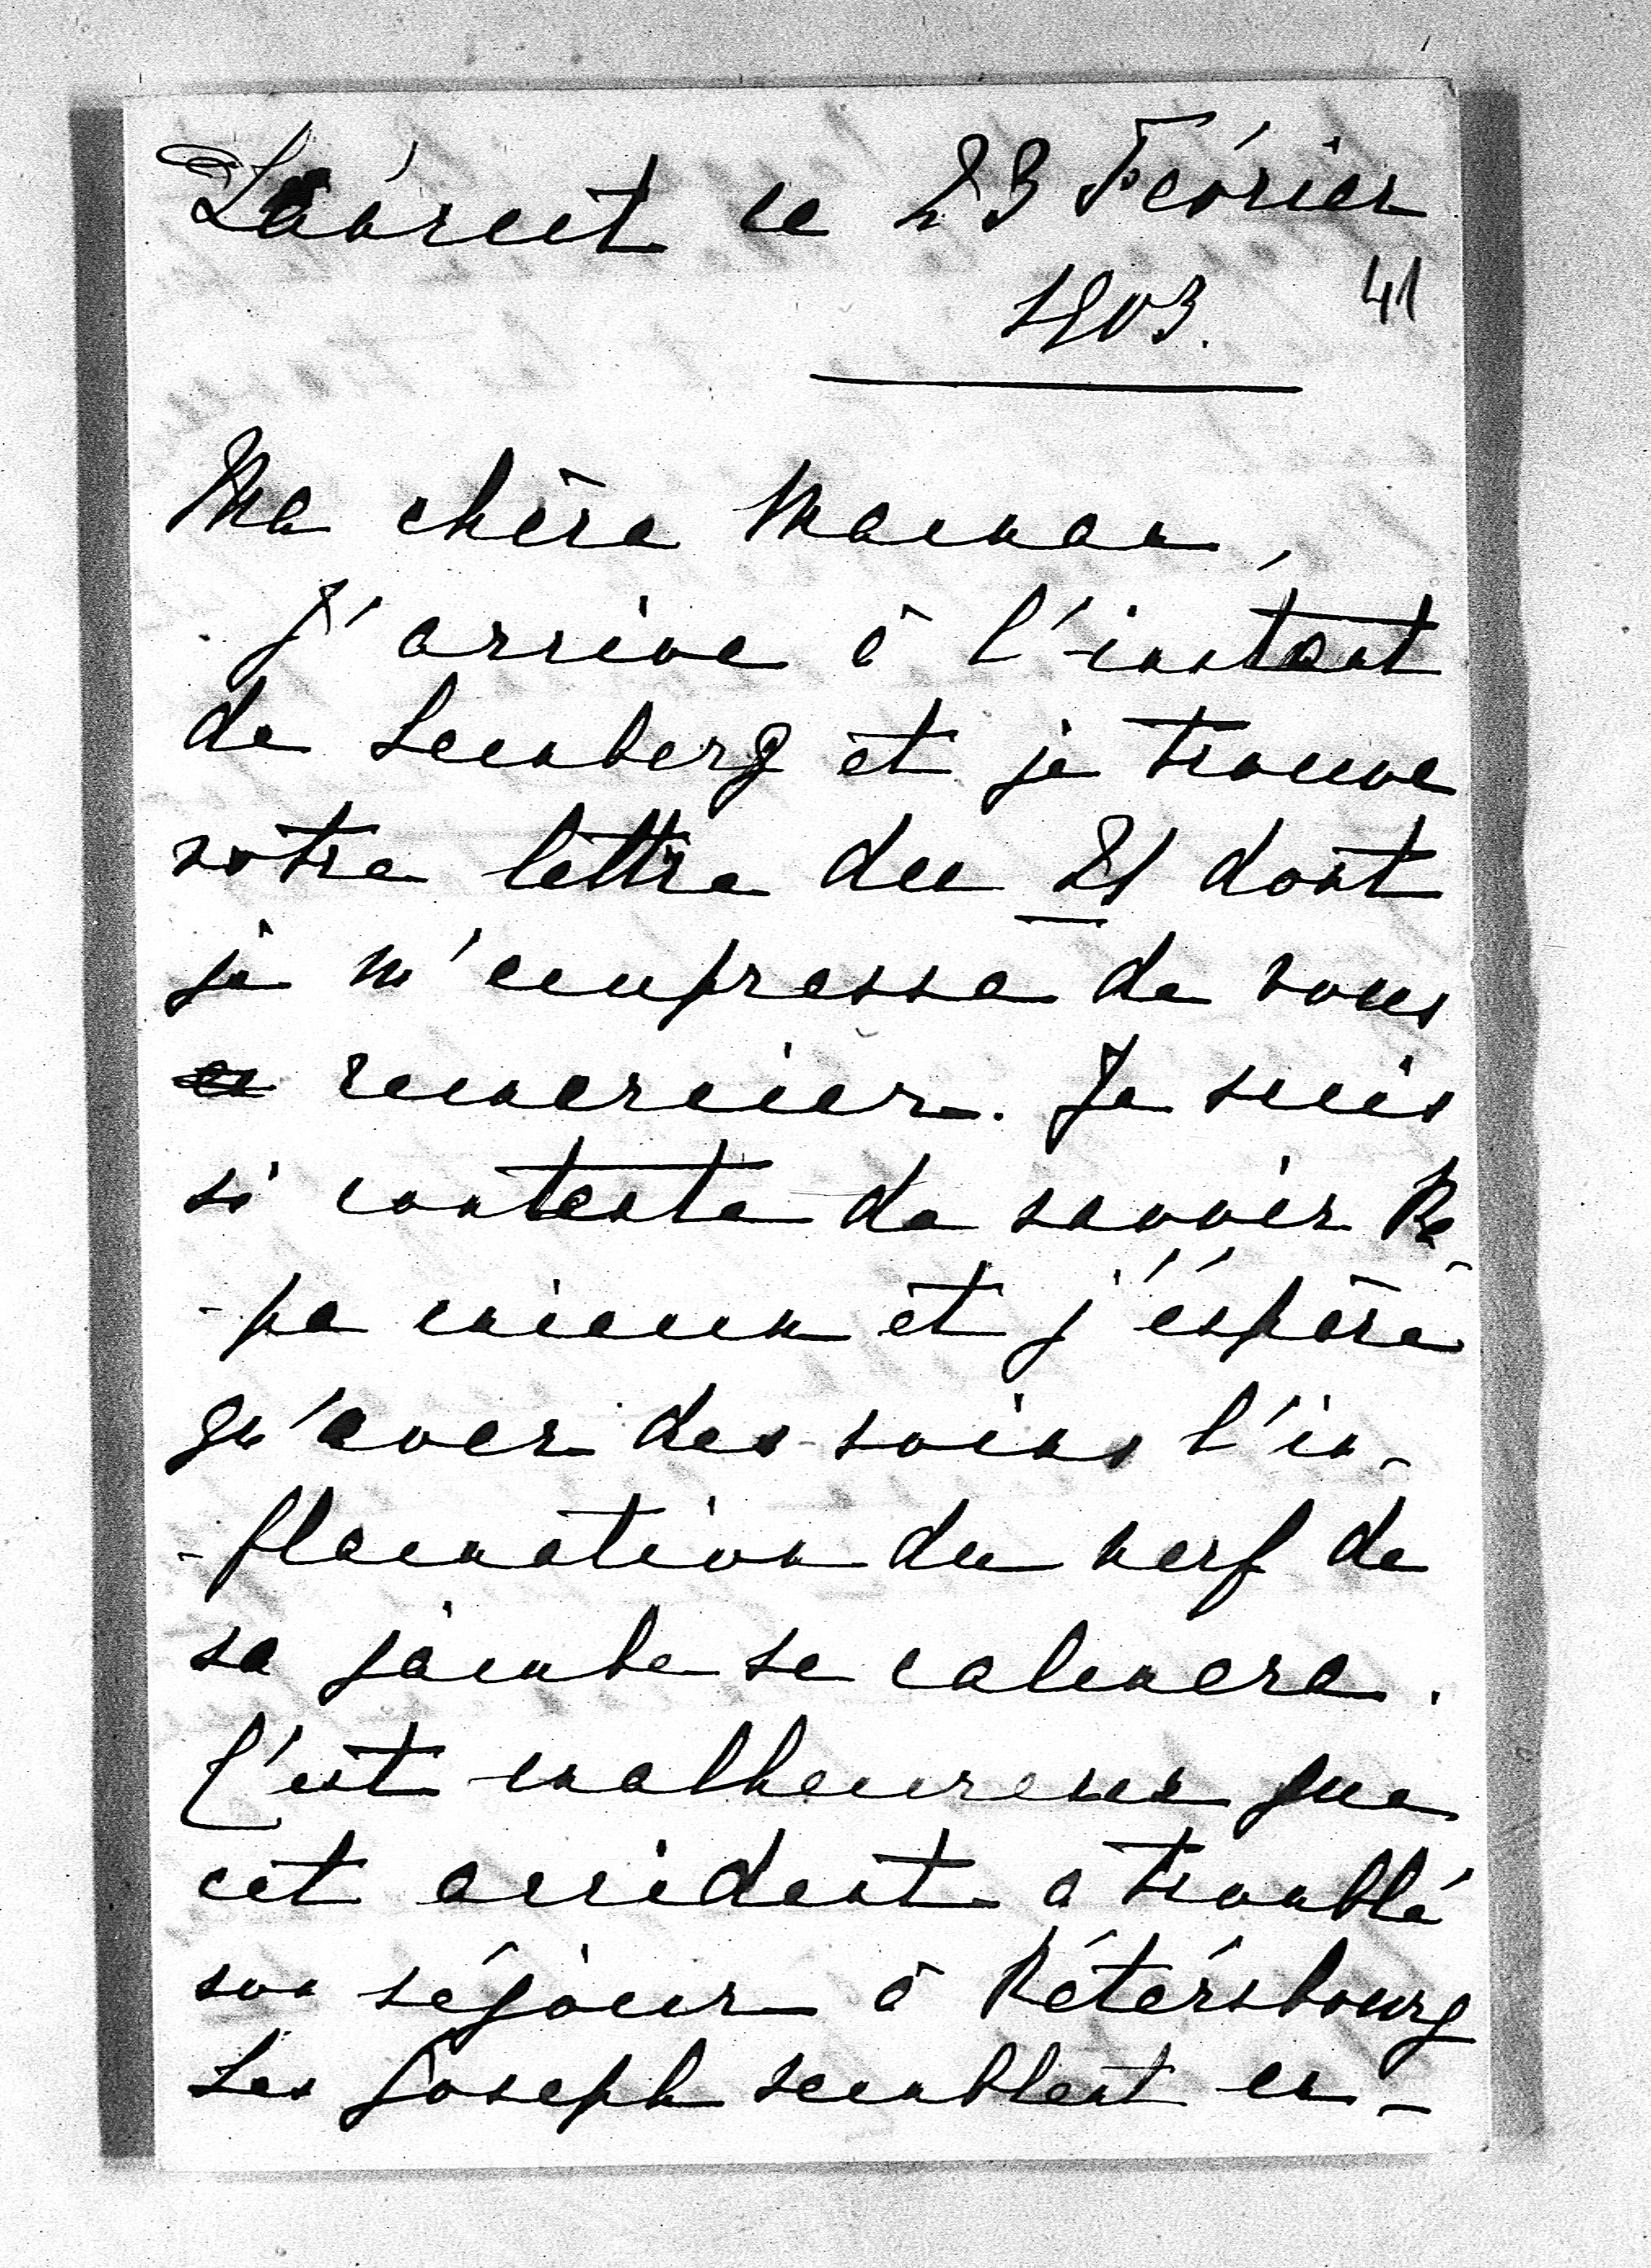 Łańcut ce 23 Février
1903. 41
Ma chère Maman,
J'arrive à l'instant
de Lemberg et je trouve
votre lettre du 21 dont
je m'empresse de vous
remercier. Je suis
si contente de savoir Pa-
-pa mieux et j'éspère
qu'avec des soins l'in-
-flamation du nerf de
sa jambe se calmera.
C'est malheureux que
cet accident a troublé
son séjour à Pétérsbourg
Les Joseph semblent en-